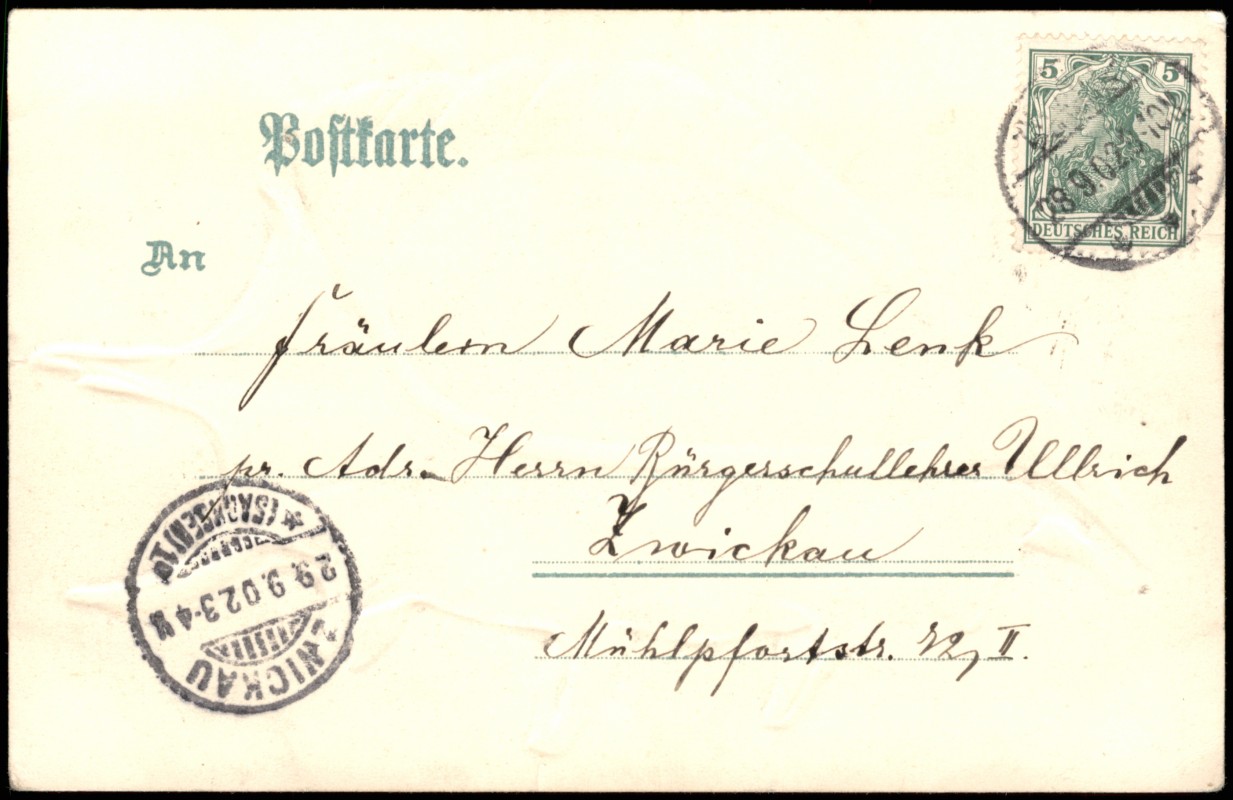 Postkarte.
5 5
DEUTSCHES REICH
28.9.02
An
Fräulein Marie Lenk
pr. Adr. Herrn Bürgerschullehrer Ullrich
Zwickau
Mühlpfortstr. 12, II.
ZWICKAU
29.9.02 3-4 N
(SACHSEN) 1